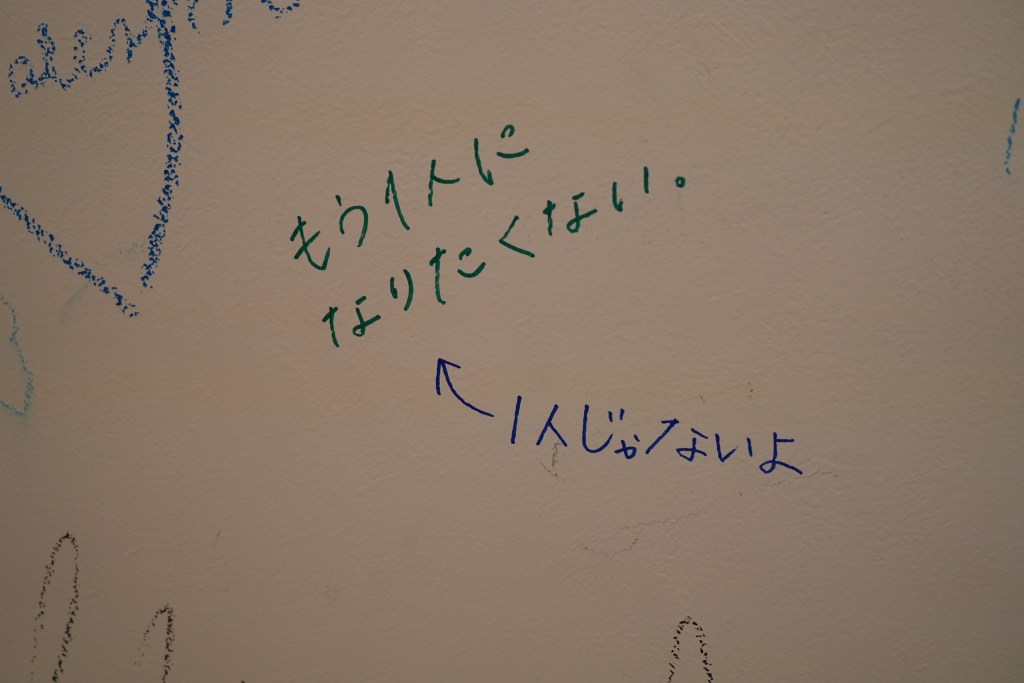 もう1人に
なりたくない。
1人じゃないよ